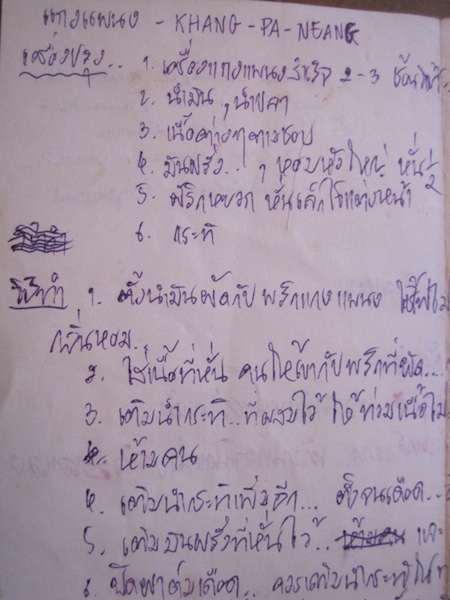 แกงแพนง - KHANG-PA-NEANG
เครื่องปรุง.. 1. เครื่องแกงแพนงสำเร็จ 2-3 ช้อนโต๊ะ
2. น้ำมัน, น้ำปลา
3. เนื้อต่างๆตามชอบ
4. มันฝรั่ง.., หอมหัวใหญ่ หั่น 1/2
5. พริกหยวก หั่นเล็กใช้แต่งหน้า
6. กระทิ
วิธีทำ 1. ตั้งน้ำมันผัดกับ พริกแกงแพนง ให้
กลิ่นหอม..
2. ใส่เนื้อที่หั่น คนให้เข้ากับพริกที่ผัด...
3. เติมน้ำกระทิ..ที่ผสมไว้ ให้ท่วมเนื้อ
ห้ามคน
4. เติมน้ำกระทิเพิ่มอีก... ตั้งจนเดือด...
5. เติมมันฝรั่งที่หั่นไว้.. และ
6. ปิดฝาต้มเดือด.. ควรเติมน้ำกระทิ